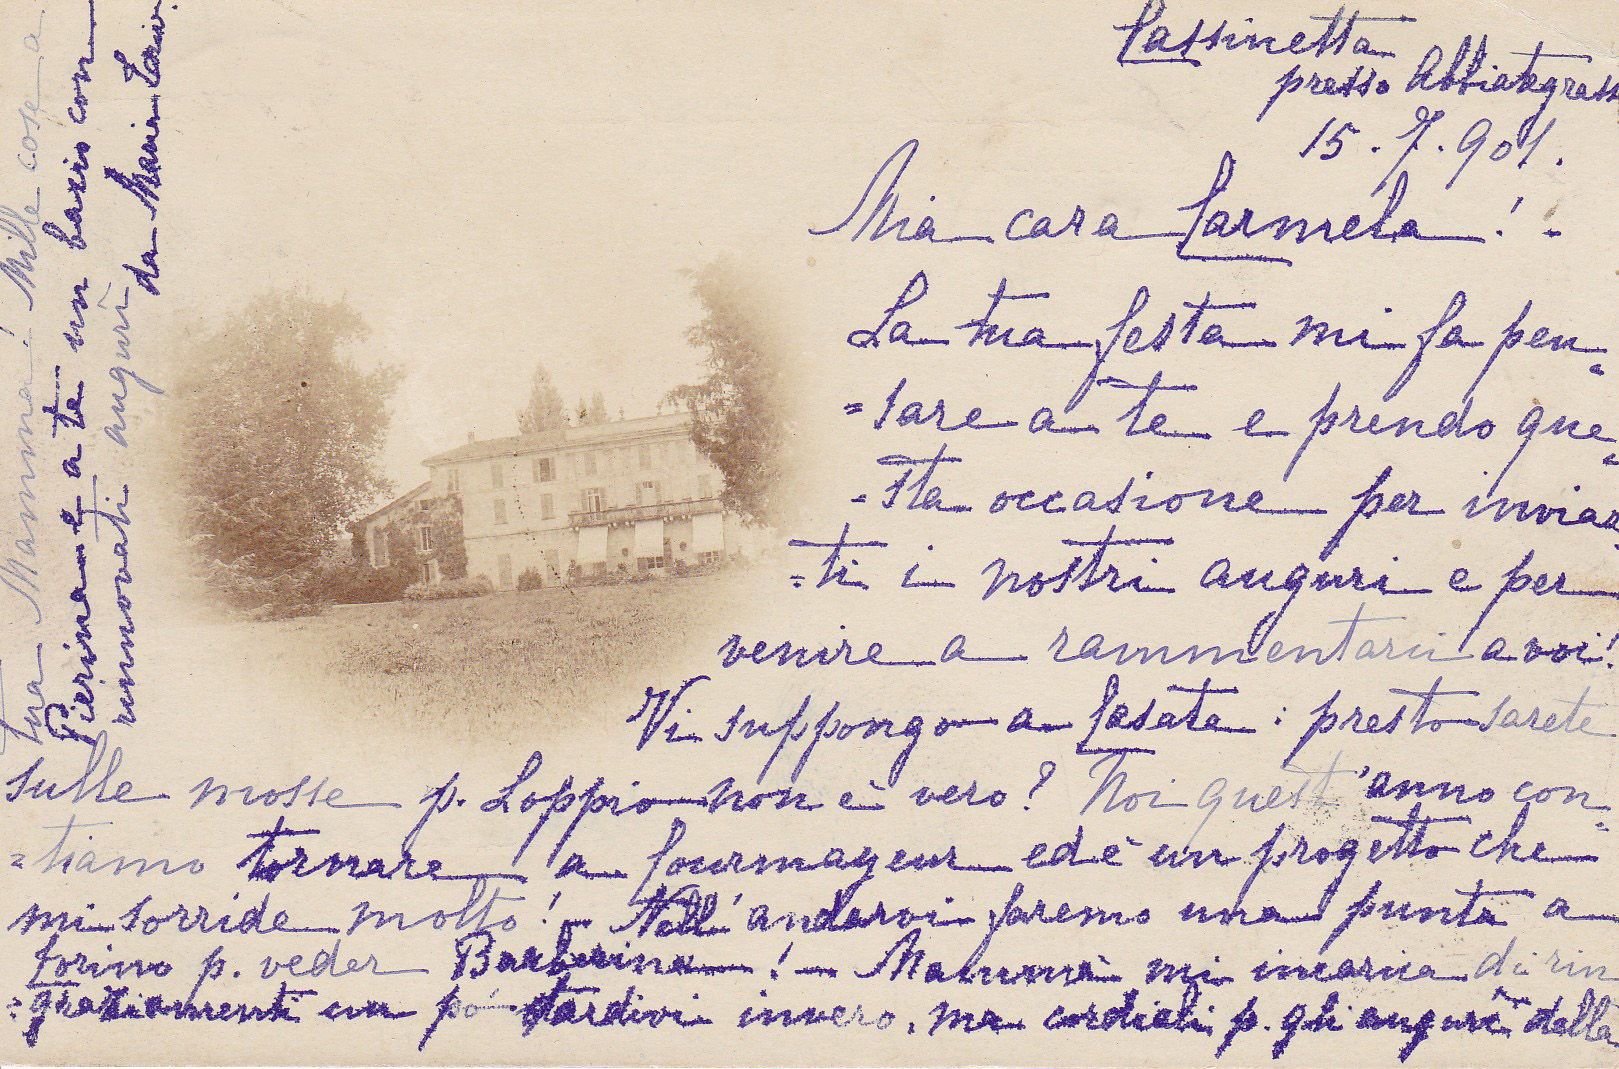 Cassinetta
presso Abbiategrass
15.7.901.
Mia cara Carmela! -
La tua festa mi fa pen=
=sare a te e prendo que=
=sta occasione per inviar=
=ti i nostri auguri e per
venire a rammentarci a voi!
Vi suppongo a Casate: presto sarete
sulle mosse p. Loppio non è vero? Noi quest'anno con=
=tiamo tornare a Courmayeur ed è un progetto che
mi sorride molto! - Nell'andarvi faremo una punta a
Torino p. veder Barberina! - Mammà mi incarica di rin
=graziamenti un po' tardivi invero, ma cordiali p. gli auguri della
tua Mammà! Mille cose a
Pierina e a te un bacio con
rinnovati auguri
da Maria